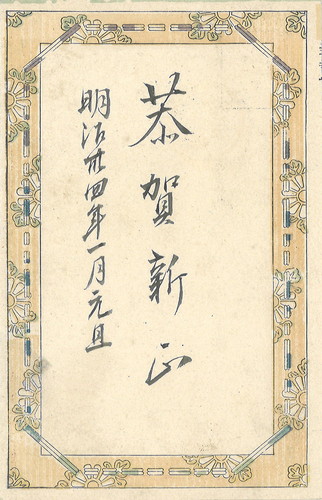 恭賀新正
明治卅四年一月元旦